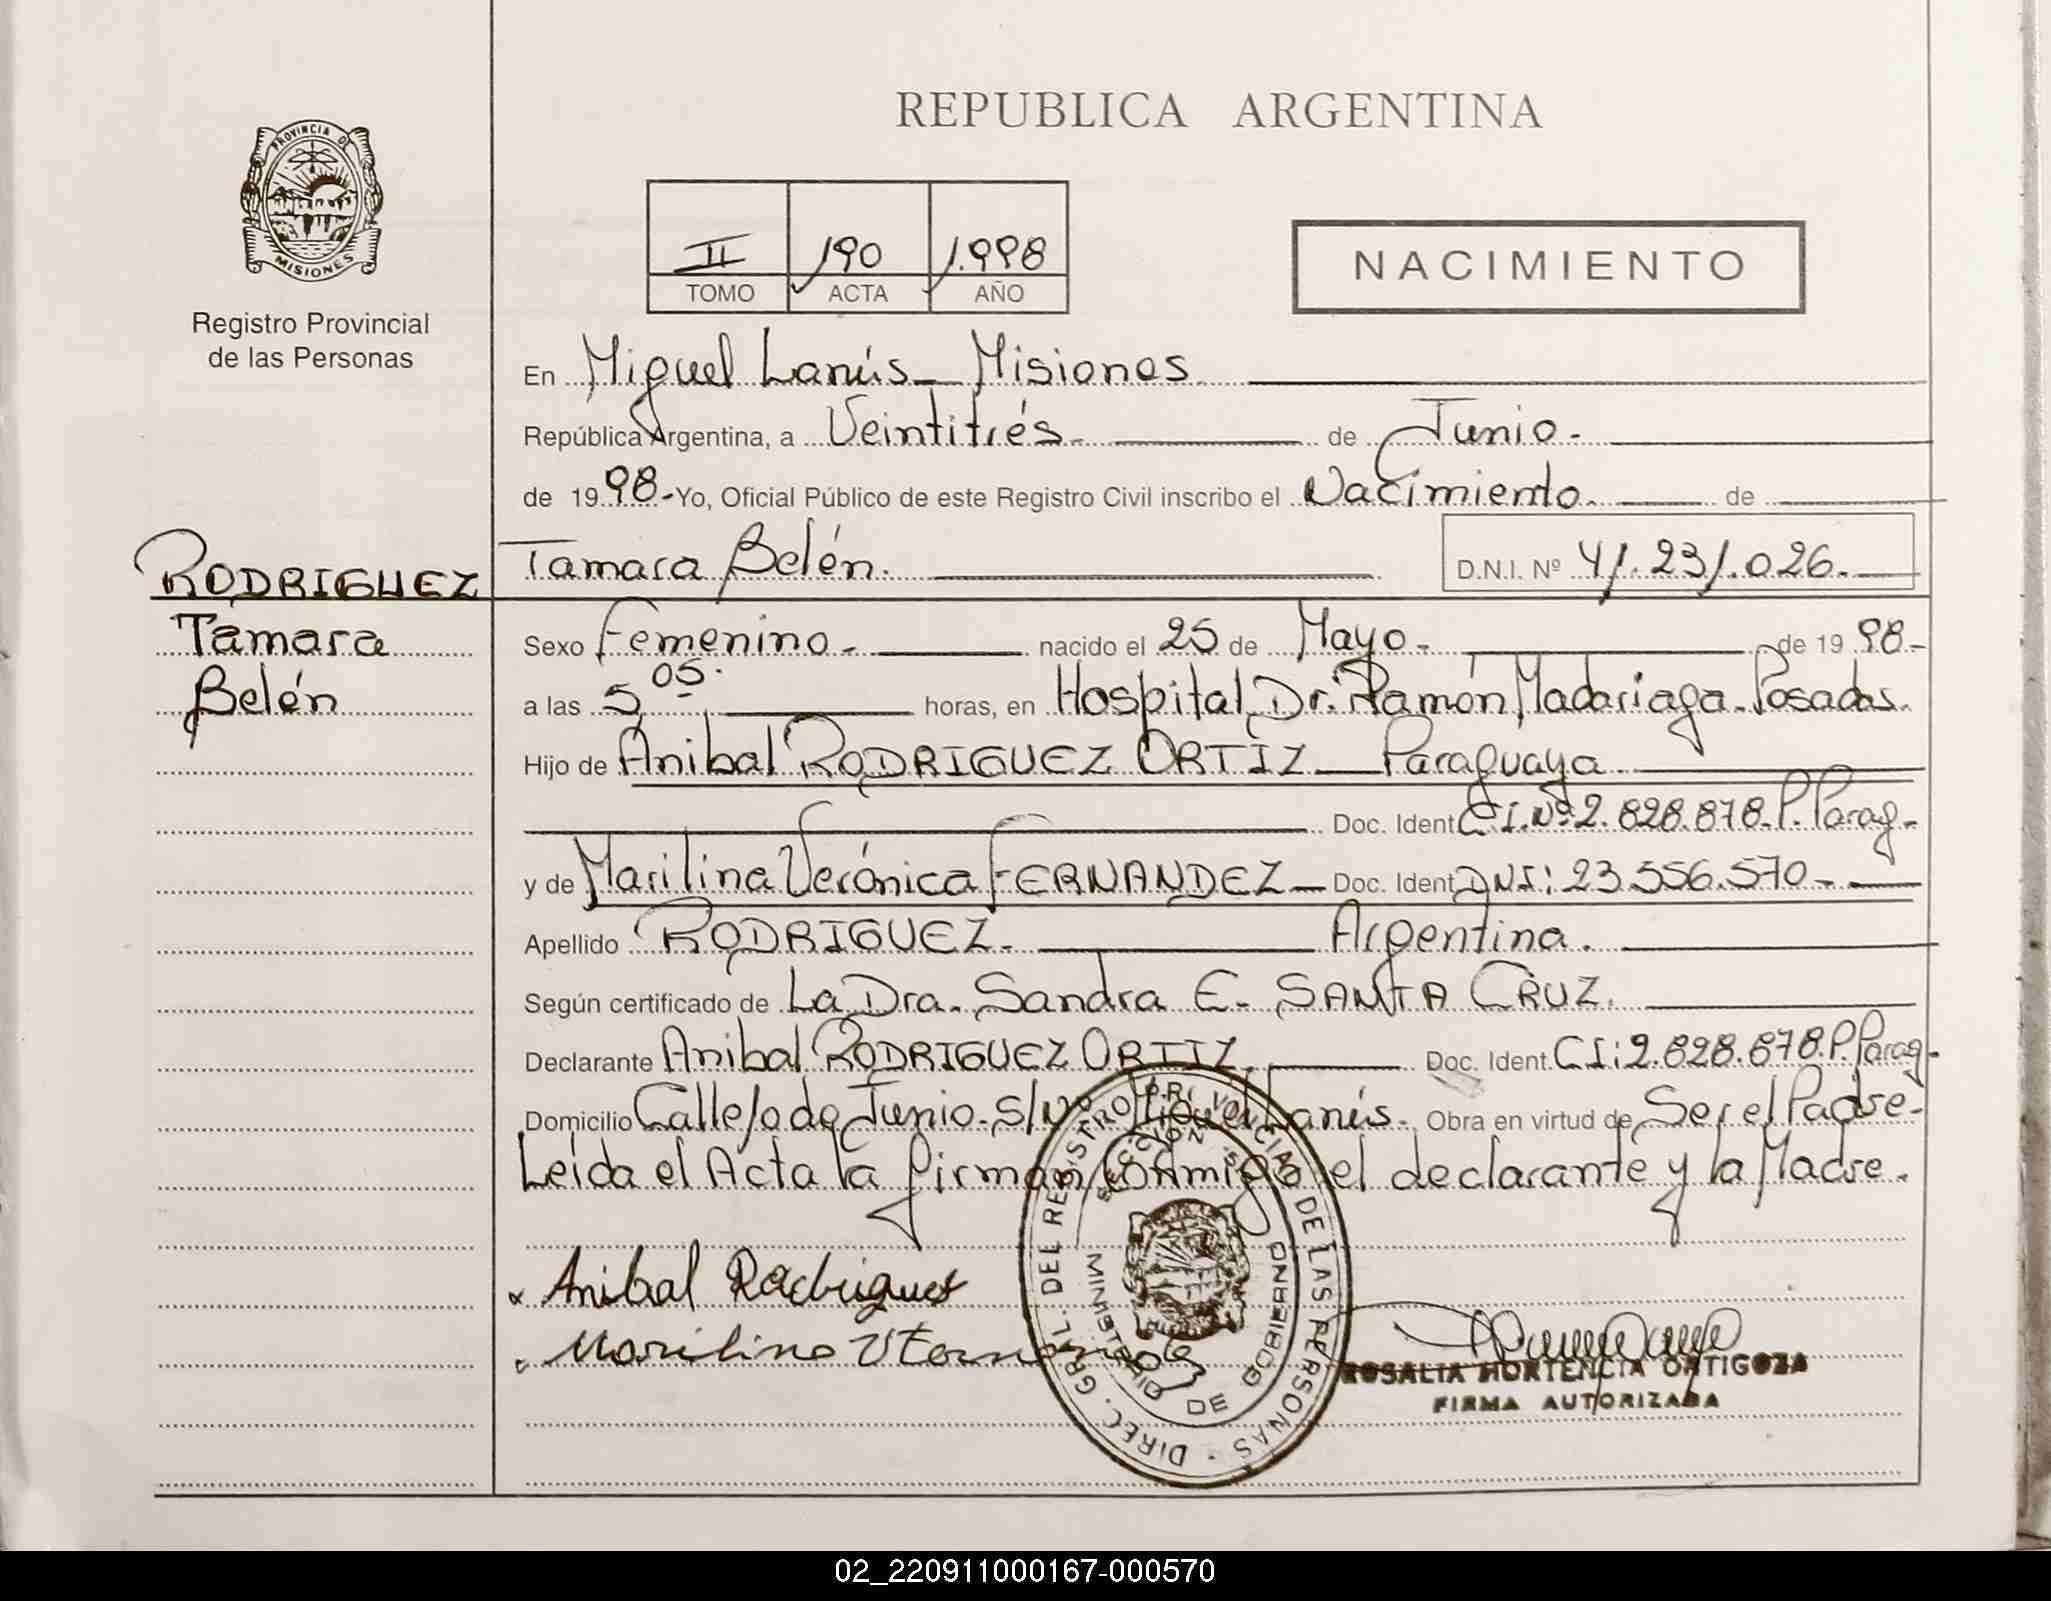 REPUBLICA ARGENTINA
PROVINCIA DE
MISIONES
Registro Provincial
de las Personas
II 190 1.998
TOMO ACTA AÑO
NACIMIENTO
En Miguel Lanús - Misiones
República Argentina, a Veintitrés - de Junio -
de 1998.- Yo, Oficial Público de este Registro Civil inscribo el Nacimiento. de
RODRIGUEZ
Tamara
Belén
Tamara Belén. D.N.I. Nº 41.231.026.
Sexo Femenino - nacido el 25 de Mayo - de 1998.-
a las 5 05. horas, en Hospital Dr. Ramón Madariaga - Posadas.
Hijo de Anibal RODRIGUEZ ORTIZ - Paraguaya
Doc. Ident C.I. Nº 2.828.878 - P. Parag -
y de Marilina Verónica FERNANDEZ - Doc. Ident DNI: 23.556.570 -
Apellido RODRIGUEZ. Argentina.
Según certificado de La Dra. Sandra E. SANTA CRUZ.
Declarante Anibal RODRIGUEZ ORTIZ. Doc. Ident. CI: 2.828.878. P. Parag -
Domicilio Calle 20 de Junio - S/Nº Miguel Lanús - Obra en virtud de Ser el Padre -
Leída el Acta la firman conmigo el declarante y la Madre.
Anibal Rodriguez
Marilina V Fernandez
DIREC. GRAL. DEL REGISTRO PROVINCIAL DE LAS PERSONAS
MINISTERIO DE GOBIERNO
ROSALIA HORTENCIA ORTIGOZA
FIRMA AUTORIZADA
02_220911000167-000570